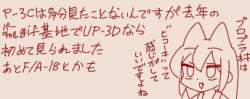 P-3Cは多分見たことないんですが去年の
基地でUP-3Dなら
初めて見られました
あとF/A-18とかも
プロペラ村は
ピコーキ！って
感じがして
いいですよね